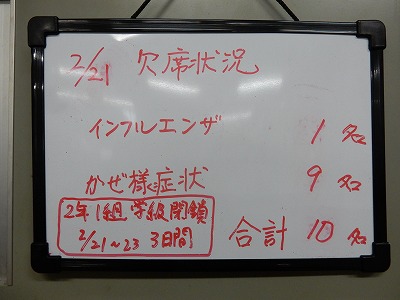 2/21 欠席状況
インフルエンザ 1名
かぜ様症状 9名
2年1組 学級閉鎖
2/21~23 3日間
合計 10名